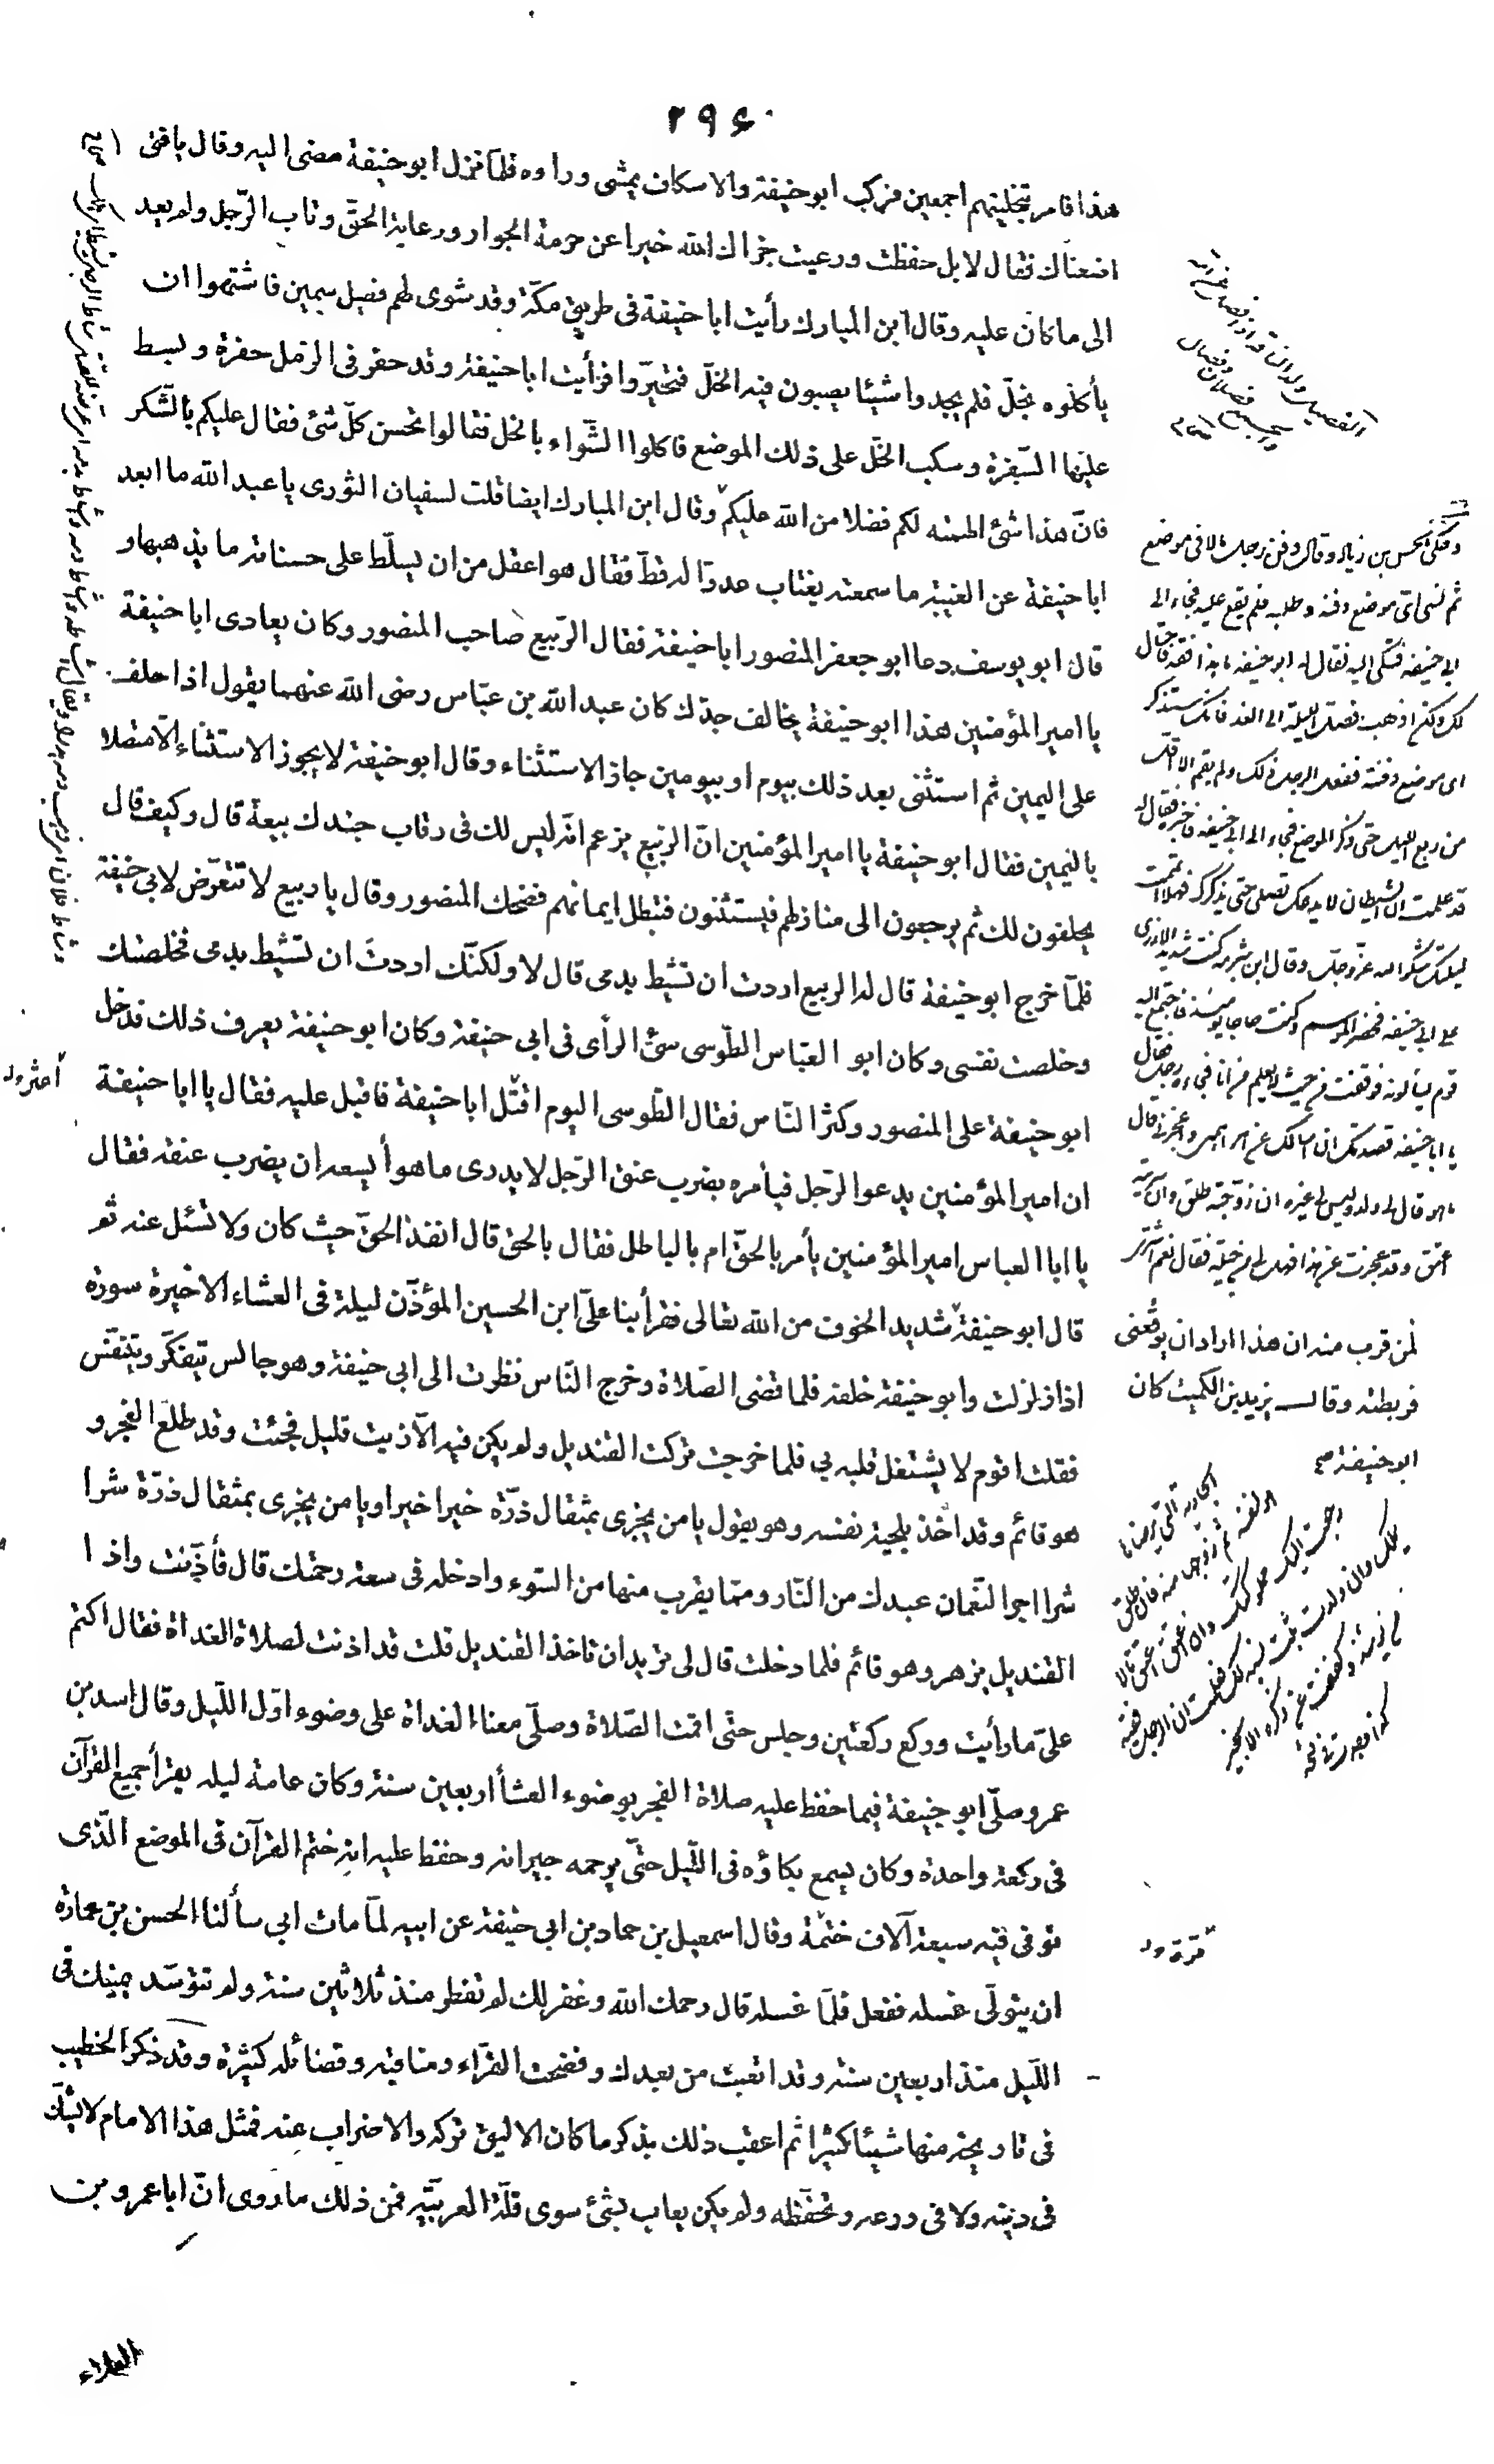 ٢٩٤
هذا فامر بتخليتهم اجمعين فركب ابو حنيفة والاسكاف يمشى وراءه فلما نزل ابو حنيفة مضى اليه وقال يا فتى
اضعناك فقال لا بل حفظت ورعيت جزاك الله خيرا عن حرمة الجوار ورعاية الحقّ وتاب الرّجل ولم يعد
الى ما كان عليه وقال ابن المبارك رأيت ابا حنيفة فى طريق مكّة وقد شوى لهم فصيل سمين فاشتهوا ان
يأكلوه بخلّ فلم يجدوا شيئا يصبون فيه الخلّ فتحيّروا فرأيت ابا حنيفة وقد حفر فى الرمل حفرة وبسط
عليها السّفرة وسكب الخلّ على ذلك الموضع فاكلوا الشّواء بالخل فقالوا تحسن كلّ شئ فقال عليكم بالشّكر
فانّ هذا شئ الهمته لكم فضلا من الله عليكم وقال ابن المبارك ايضا قلت لسفيان الثورى يا عبد الله ما ابعد
ابا حنيفة عن الغيبة ما سمعته يغتاب عدوّا له قطّ فقال هو اعقل من ان يسلّط على حسناته ما يذهبها و
قال ابو يوسف دعا ابو جعفر المنصور ابا حنيفة فقال الرّبيع صاحب المنصور وكان يعادى ابا حنيفة
يا امير المؤمنين هذا ابو حنيفة يخالف جدّك كان عبد الله بن عبّاس رضى الله عنهما يقول اذا حلف
على اليمين ثم استثنى بعد ذلك بيوم او بيومين جاز الاستثناء وقال ابو حنيفة لا يجوز الاستثناء الّا متصلا
باليمين فقال ابو حنيفة يا امير المؤمنين انّ الربيع يزعم انّه ليس لك فى رقاب جندك بيعة قال وكيف قال
يحلفون لك ثم يرجعون الى منازلهم فيستثنون فتبطل ايمانهم فضحك المنصور وقال يا ربيع لا تتعرّض لابى حنيفة
فلمّا خرج ابو حنيفة قال له الربيع اردت ان تشيط بدمى قال لا ولكنّك اردت ان تشيط بدمى فخلصتك
وخلصت نفسى وكان ابو العبّاس الطّوسى سئ الرأى فى ابى حنيفة وكان ابو حنيفة يعرف ذلك فدخل
ابو حنيفة على المنصور وكثر النّاس فقال الطّوسى اليوم اقتل ابا حنيفة فاقبل عليه فقال يا ابا حنيفة
ان امير المؤمنين يدعو الرّجل فيأمره بضرب عنق الرّجل لا يدرى ما هو أيسعه ان يضرب عنقه فقال
يا ابا العباس امير المؤمنين يأمر بالحقّ ام بالباطل فقال بالحق قال انفذ الحقّ حيث كان ولا تسئل عنه ثم
قال ابو حنيفة شديد الخوف من الله تعالى فقرأ بنا علىّ ابن الحسين المؤذّن ليلة فى العشاء الاخيرة سورة
اذا زلزلت وابو حنيفة خلفه فلما قضى الصّلاة وخرج النّاس نظرت الى ابى حنيفة وهو جالس يتفكّر ويتنفّس
فقلت اقوم لا يشتغل قلبه بى فلما خرجت تركت القنديل ولم يكن فيه الّا زيت قليل فجئت وقد طلع الفجر و
هو قائم وقد اخذ بلحية نفسه وهو يقول يا من يجزى بمثقال ذرّة خيرا خيرا ويا من يجزى بمثقال ذرّة شرا
شرا اجر النّعمان عبدك من النّار وممّا يقرب منها من السّوء وادخله فى سعة رحمتك قال فأذّنت واذا
القنديل يزهر وهو قائم فلما دخلت قال لى تريد ان تاخذ القنديل قلت قد اذنت لصلاة الغداة فقال اكتم
علىّ ما رأيت وركع ركعتين وجلس حتّى اقمت الصّلاة وصلّى معنا الغداة على وضوء اوّل اللّيل وقال اسد بن
عمرو صلّى ابو حنيفة فيما حفظ عليه صلاة الفجر بوضوء العشأ اربعين سنة وكان عامة ليله يقرأ جميع القرآن
فى ركعة واحدة وكان يسمع بكاؤه فى اللّيل حتّى يرحمه جيرانه وحفظ عليه انه ختم القرآن فى الموضع الّذى
توفى فيه سبعة آلاف ختمة وقال اسمعيل بن حماد بن ابى حنيفة عن ابيه لمّا مات ابى سألنا الحسن بن عمارة
ان يتولّى غسله ففعل فلمّا غسله قال رحمك الله وغفر لك لم تفطر منذ ثلاثين سنة ولم تتوسّد يمينك فى
اللّيل منذ اربعين سنة وقد اتعبت من بعدك وفضحت القرّاء ومناقبه وفضائله كثيرة وقد ذكر الخطيب
فى تاريخه منها شيئا كثيرا ثم اعقب ذلك بذكر ما كان الاليق تركه والاضراب عنه فمثل هذا الامام لا يشكّ
فى دينه ولا فى ورعه وتحفّظه ولم يكن يعاب بشئ سوى قلّة العربيّة فمن ذلك ما روى انّ ابا عمرو بن
العلاء
وحكى الحسن بن زياد وقال دفن رجل مالا فى موضع
ثم نسى اى موضع دفنه وطلبه فلم يقع عليه فجاء الى
ابى حنيفة فشكى اليه فقال له ابو حنيفة ما هذا فقه فاحتال
لك ولكن اذهب فصلّ الليلة الى الغد فانك ستذكر
اى موضع دفنته ففعل الرجل ذلك ولم يقم الا اقل
من ربع الليل حتى ذكر الموضع فجاء الى ابى حنيفة فاخبره فقال له
قد علمت ان الشيطان لا يدعك تصلى حتى يذكرك فهلا اتممت
ليلتك شكرا لله عزّ وجلّ وقال ابن شبرمة كنت شديد الازرى
على ابى حنيفة فحضر الموسم وكنت حاجا يومئذ فاجتمع اليه
قوم يسألونه فوقفت من حيث لا يعلم من انا فجاءه رجل فقال
يا ابا حنيفة قصدتك اسالك عن امر اهمنى واعجزنى قال
ما هو قال لى ولد وليس لى غيره ان زوّجته طلق وان سريته
اعتق وقد عجزت عن هذا فهل لى من حيلة فقال نعم اشتر
الجارية التى يرضاها
لنفسك ثم زوّجها منه فان طلق
رجعت اليك مملوكتك وان اعتق اعتق ما لا
يملك وان ولدت ثبت نسبه لك فعلمت ان الرجل فقيه
من يومئذ وكففت عن ذكره الا بخير
لمن قرب منه ان هذا اراد ان يوقعنى
فربطته وقال يزيد بن الكميت كان
ابو حنيفة صح